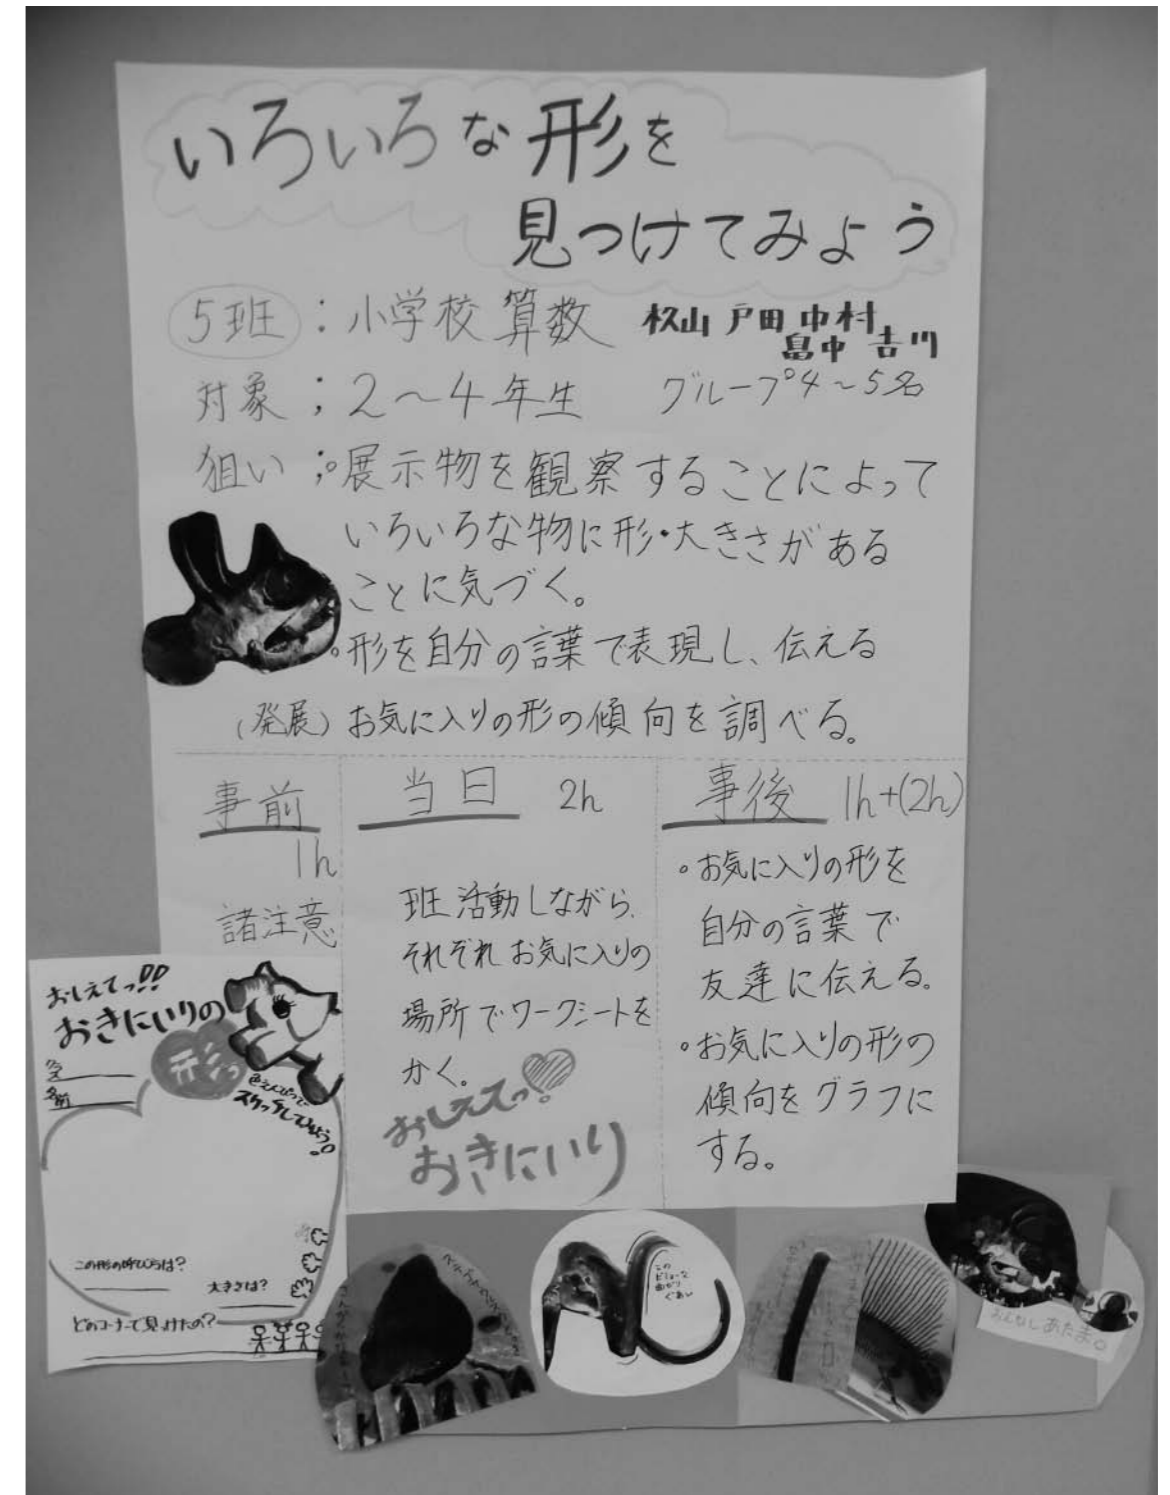 いろいろな形を
見つけてみよう
5班：小学校算数 杉山 戸田 中村
畠中 吉川
対象；2～4年生 グループ4～5名
狙い；。展示物を観察することによって
いろいろな物に形・大きさがある
ことに気づく。
。形を自分の言葉で表現し、伝える
(発展) お気に入りの形の傾向を調べる。
事前
1h
諸注意
当日 2h
班活動しながら、
それぞれお気に入りの
場所でワークシートを
かく。
おしえてっ!
おきにいり
事後 1h+(2h)
。お気に入りの形を
自分の言葉で
友達に伝える。
。お気に入りの形の
傾向をグラフに
する。
おしえてっ!!
おきにいりの
形っ
名前
色えんぴつで
スケッチしてみよう!
この形の呼び名は?
大きさは?
どのコーナーで見つけたの?
この
ビミョーな
まがり
ぐあい
あたま。